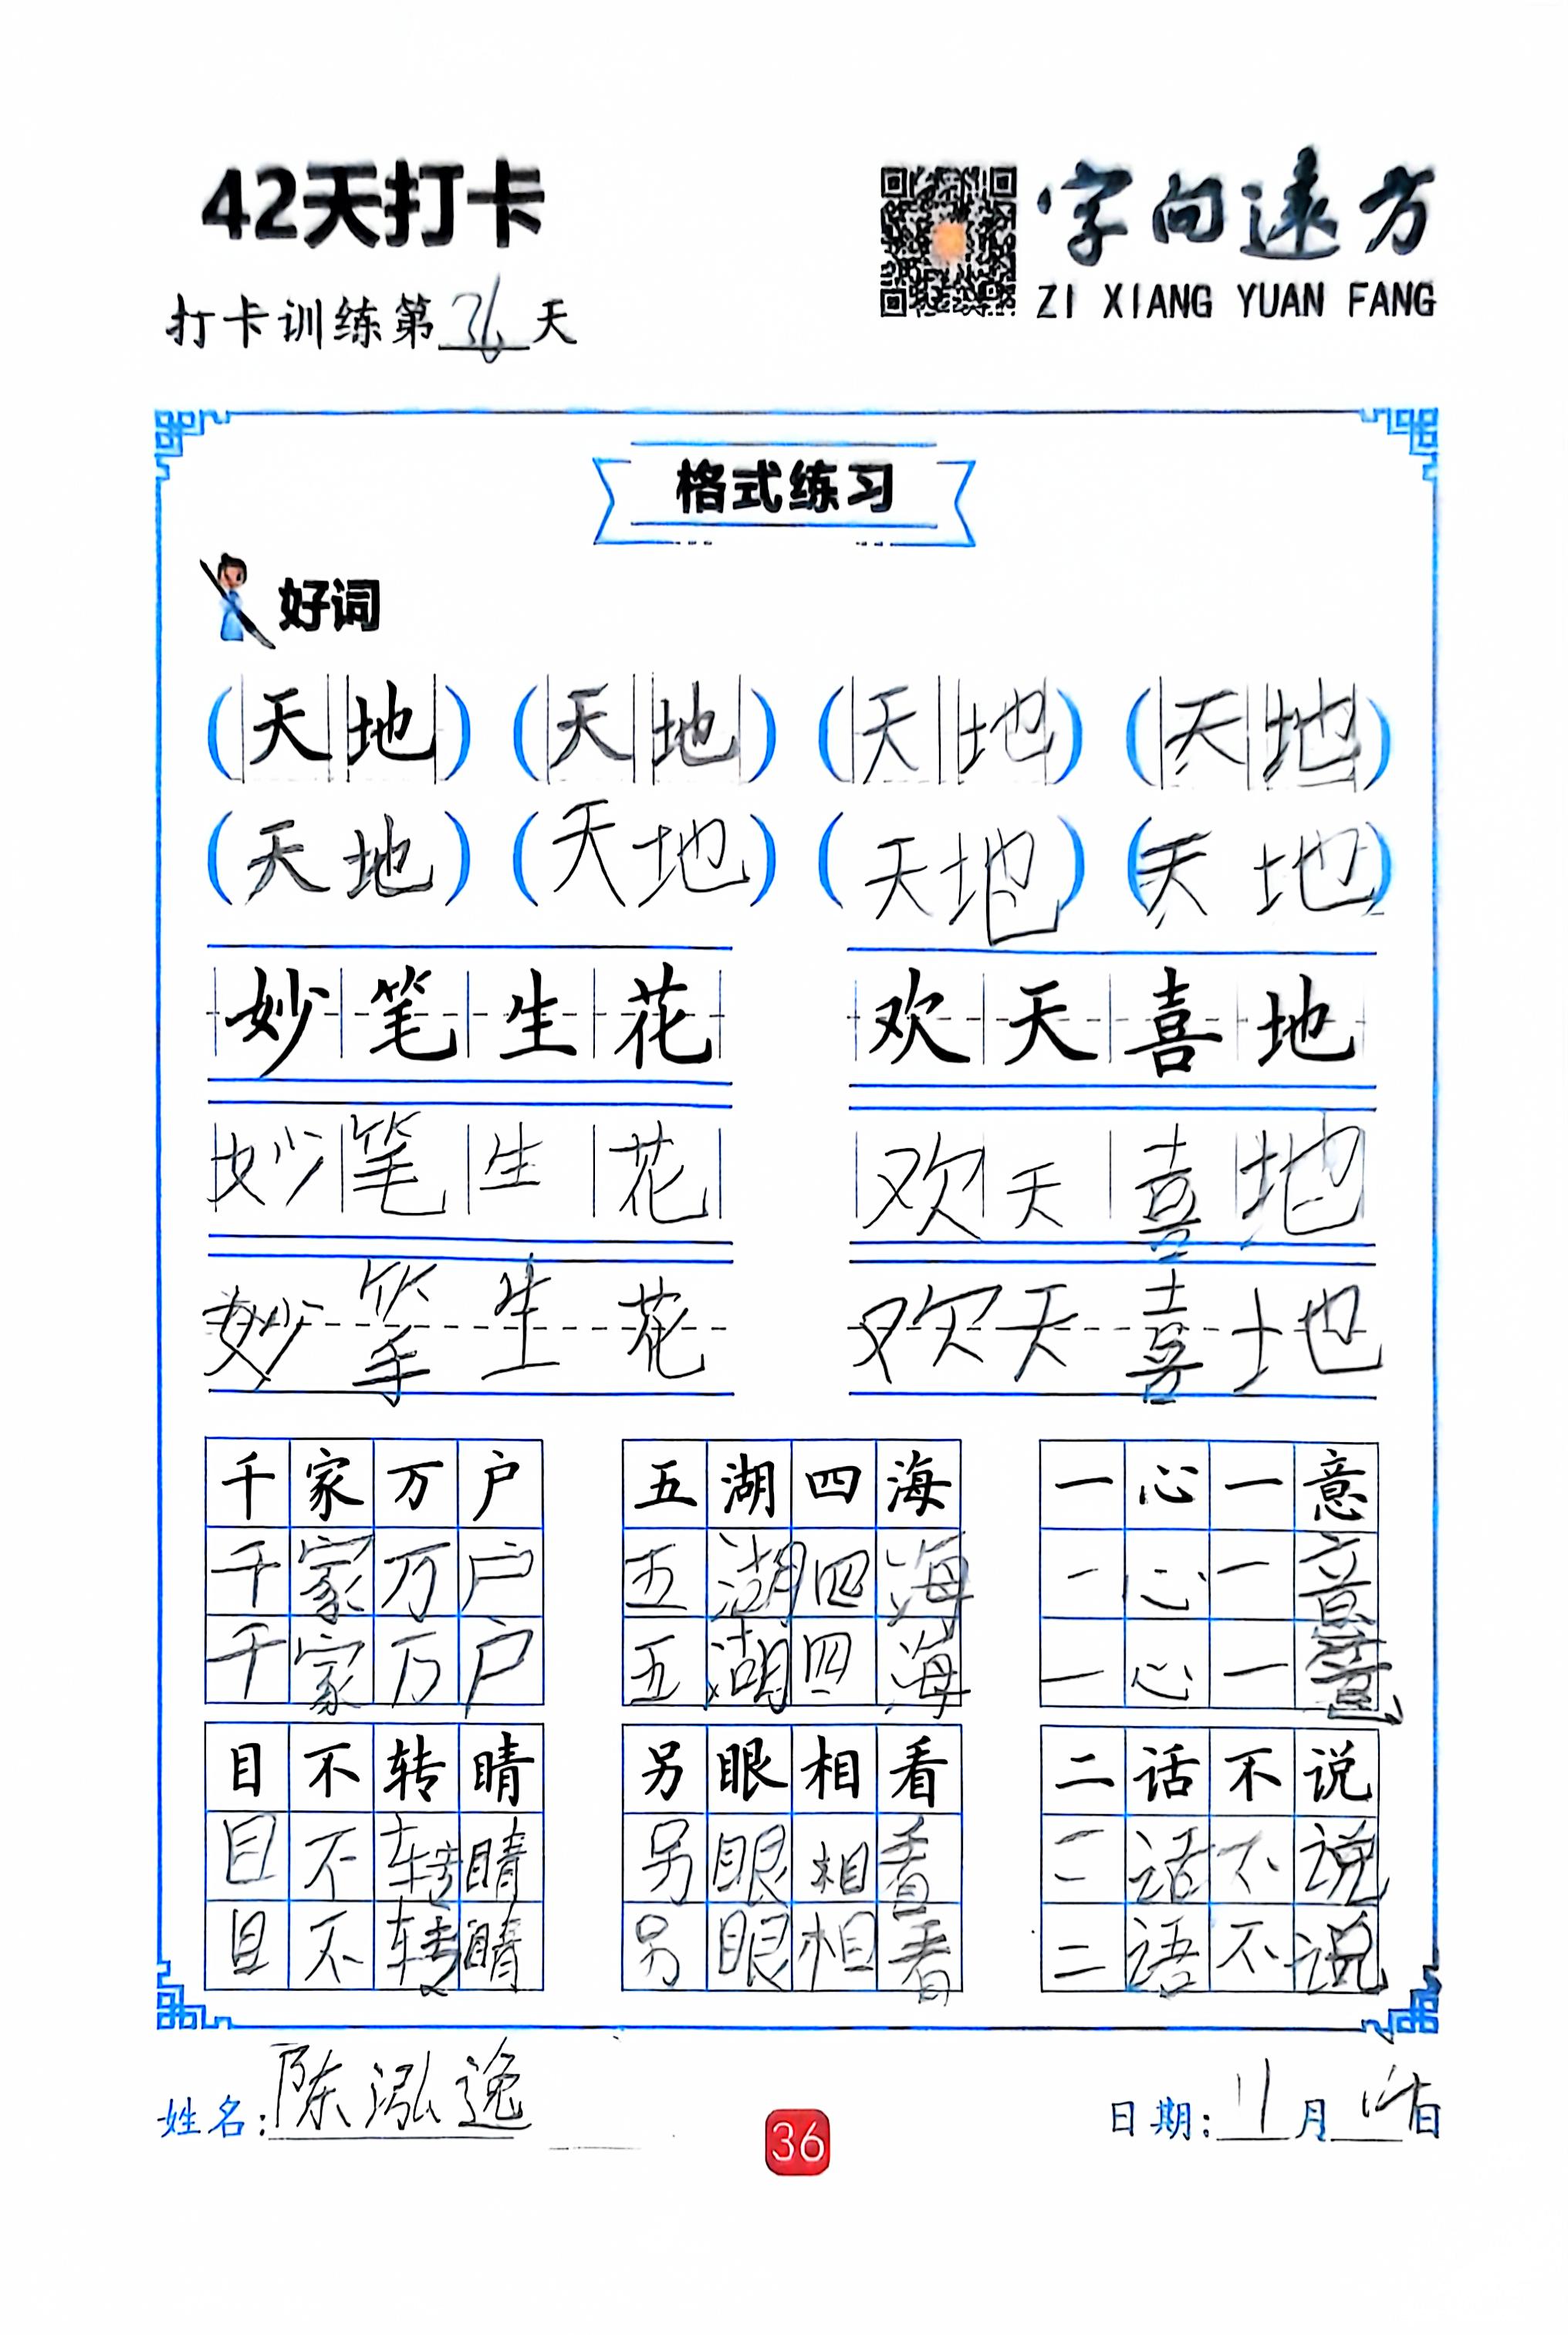 42天打卡
字向远方
ZI XIANG YUAN FANG
打卡训练第36天
格式练习
好词
(天地) (天地) (天地) (天地)
(天地) (天地) (天地) (天地)
妙笔生花 欢天喜地
妙笔生花 欢天喜地
妙笔生花 欢天喜地
千家万户 五湖四海 一心一意
千家万户 五湖四海 一心一意
千家万户 五湖四海 一心一意
目不转睛 另眼相看 二话不说
目不转睛 另眼相看 二话不说
目不转睛 另眼相看 二语不说
姓名:陈泓逸
36
日期:11月 日